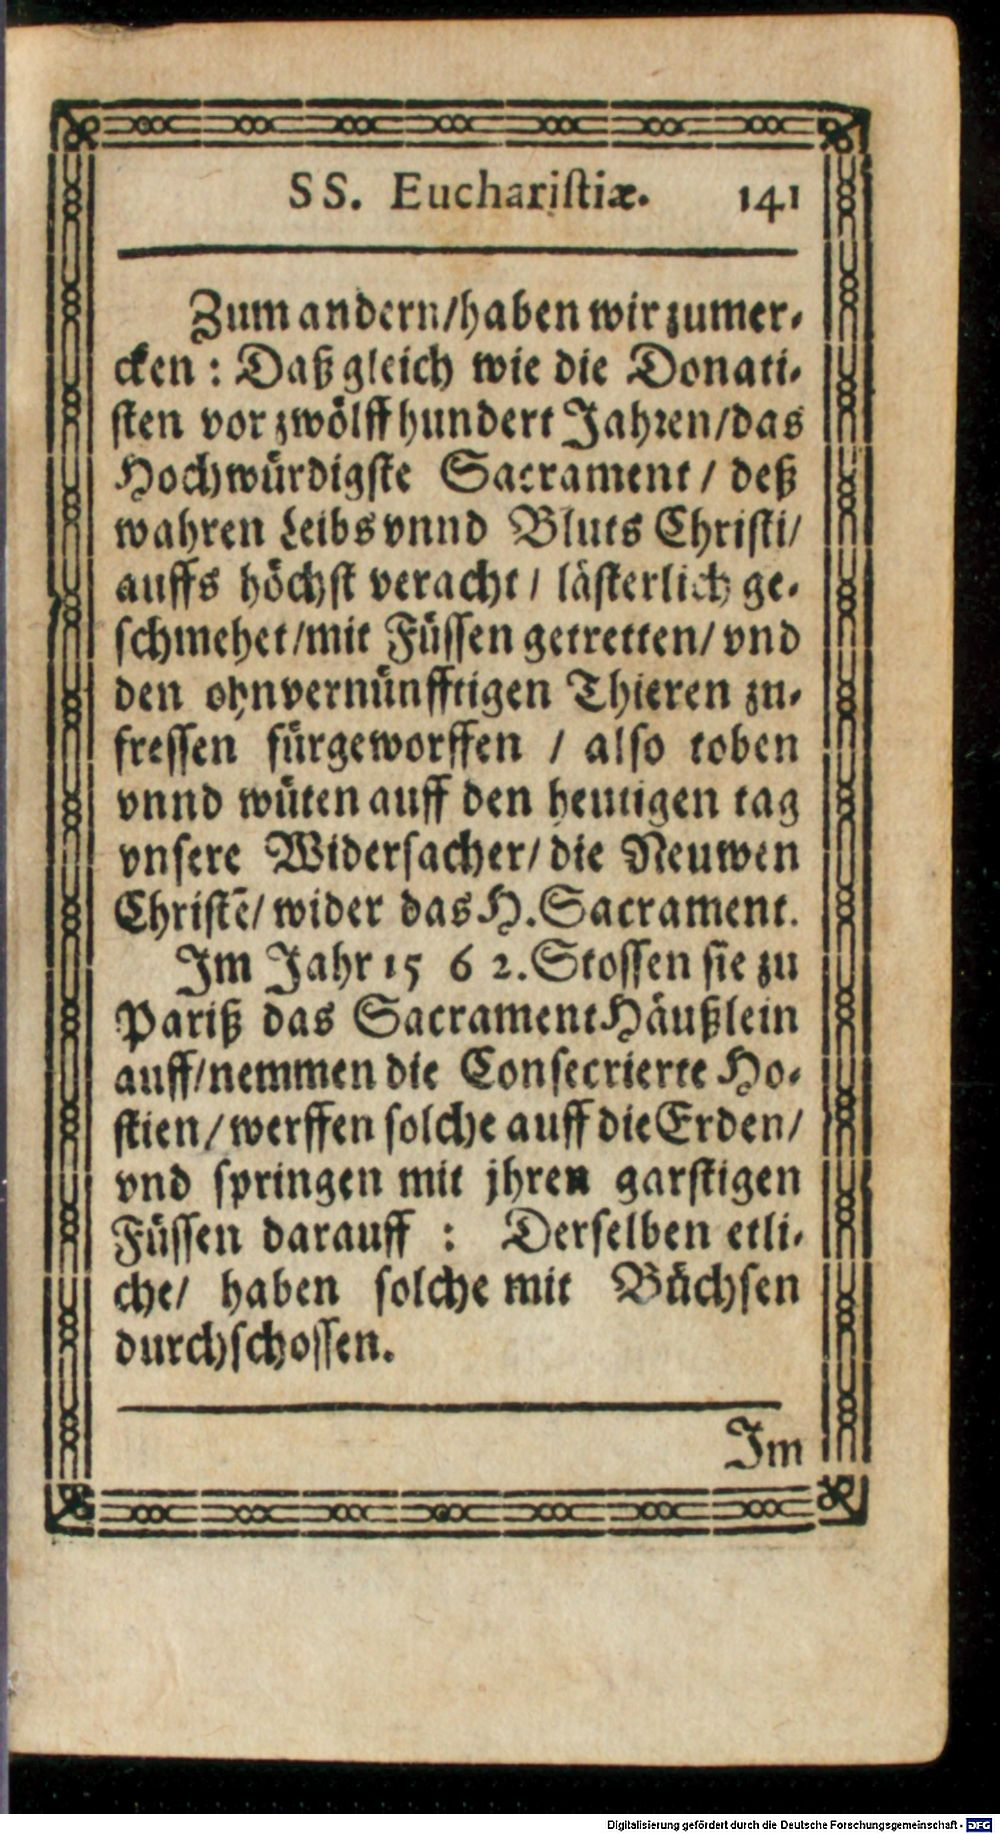 SS. Euchariſtiæ. 141
Zum andern/haben wir zumer-
cken: Daß gleich wie die Donati-
ſten vor zwölff hundert Jahren/das
Hochwürdigſte Sacrament / deß
wahren Leibs vnnd Bluts Chriſti/
auffs höchſt veracht / läſterlich ge-
ſchmehet/mit Füſſen getretten/ vnd
den ohnvernünfftigen Thieren zu-
freſſen fürgeworffen / alſo toben
vnnd wüten auff den heutigen tag
vnſere Widerſacher/ die Neuwen
Chriſtē/ wider das H. Sacrament.
Im Jahr 15 6 2. Stoſſen ſie zu
Pariß das Sacrament Häußlein
auff/nemmen die Conſecrierte Ho-
ſtien/ werffen ſolche auff die Erden/
vnd ſpringen mit jhren garſtigen
Füſſen darauff : Derſelben etli-
che/ haben ſolche mit Büchſen
durchſchoſſen.
Im
Digitalisierung gefördert durch die Deutsche Forschungsgemeinschaft - DFG